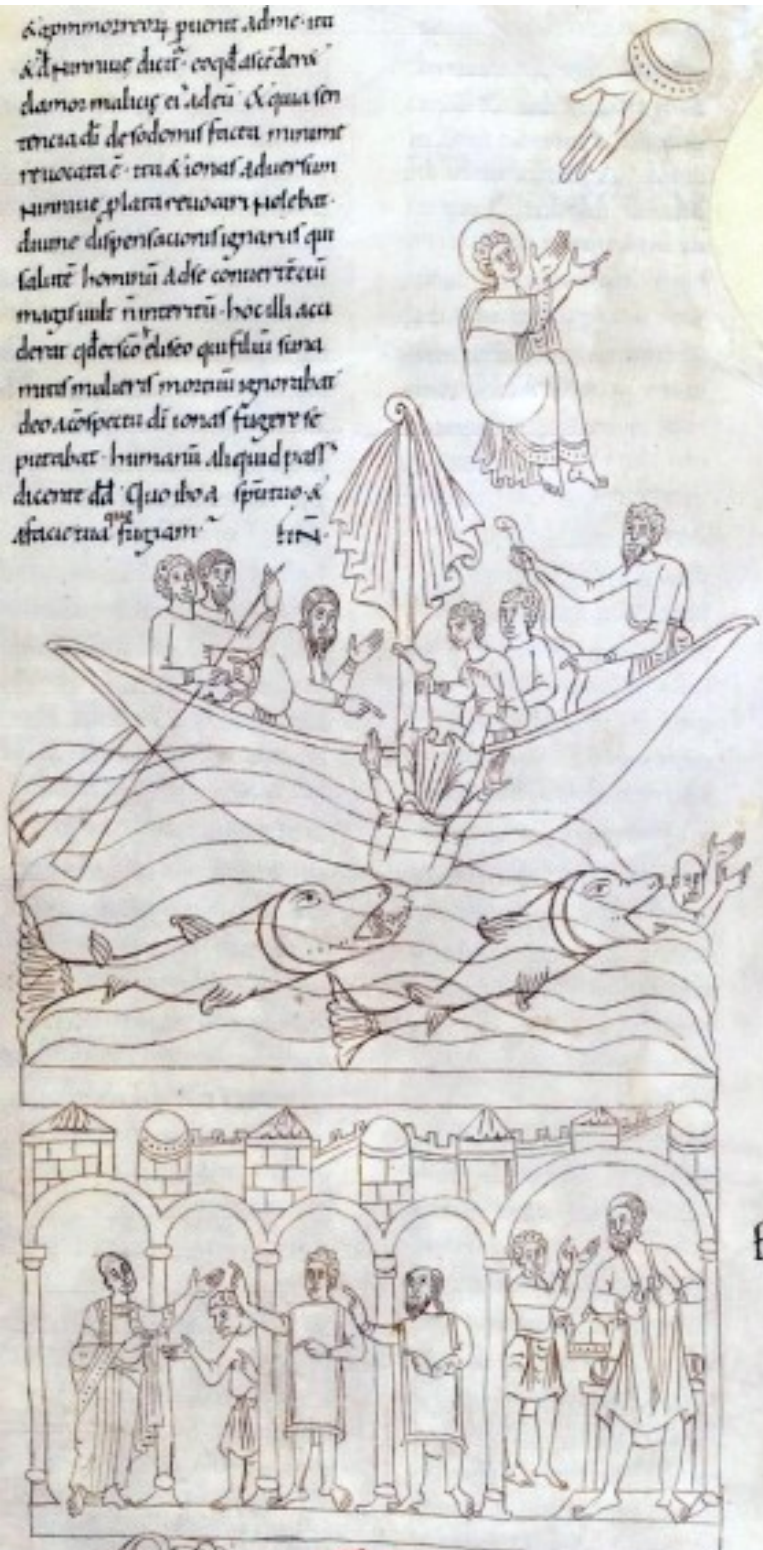 & gommorreorū puenit ad me · ita
& d̄ Ninniuę dicit᷑ · eo qd̄ ascēder&
clamor malicię ei᷒ ad eū · & quia sen
tencia dī de sodomis facta minime
revocata ē · ita & ionas adversum
Ninniuę platā revocari Nolebat ·
diuine dispensacionis ignarus qui
salutē hominū ad se convertēciū
magis uult n̄ interitū · hoc illi acci
derat qd̄ &
eliseo qui filiū suna
mitis mulieris mortuū ignorabat
deo a cōspectu dī ionas fugere se
putabat · humanū aliquid pass᷒
dicente dd̄ · Quo ibo a spū tuo &
a facie tua quo fugiam